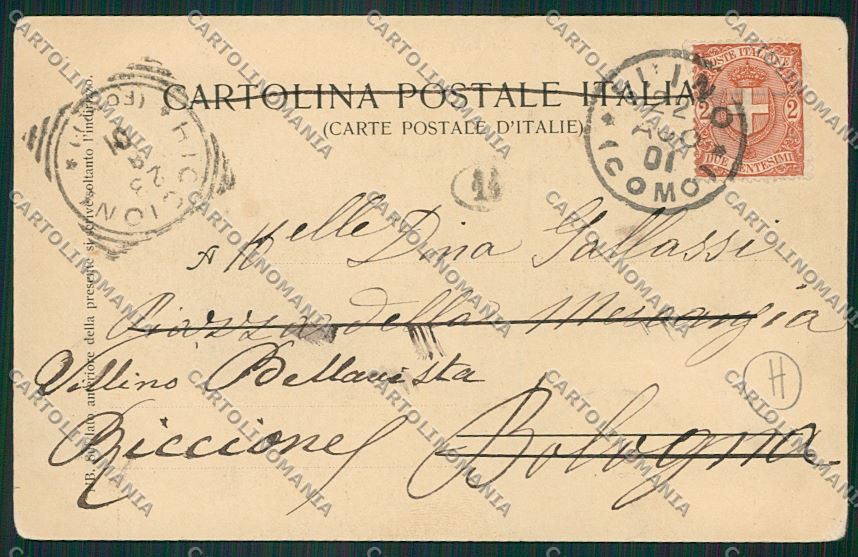 CARTOLINA POSTALE ITALIANA
(CARTE POSTALE D'ITALIE)
POSTE ITALIANE
2 2
DUE CENTESIMI
22
AGO
01
(COMO)
RICCION
01
NB. Sul lato anteriore della presente si scrive soltanto l'indirizzo.
A Melle Dina Gallassi
Piazza della Mercanzia
Villino Bellavista
Riccione
Bologna
H
CARTOLINOMANIA